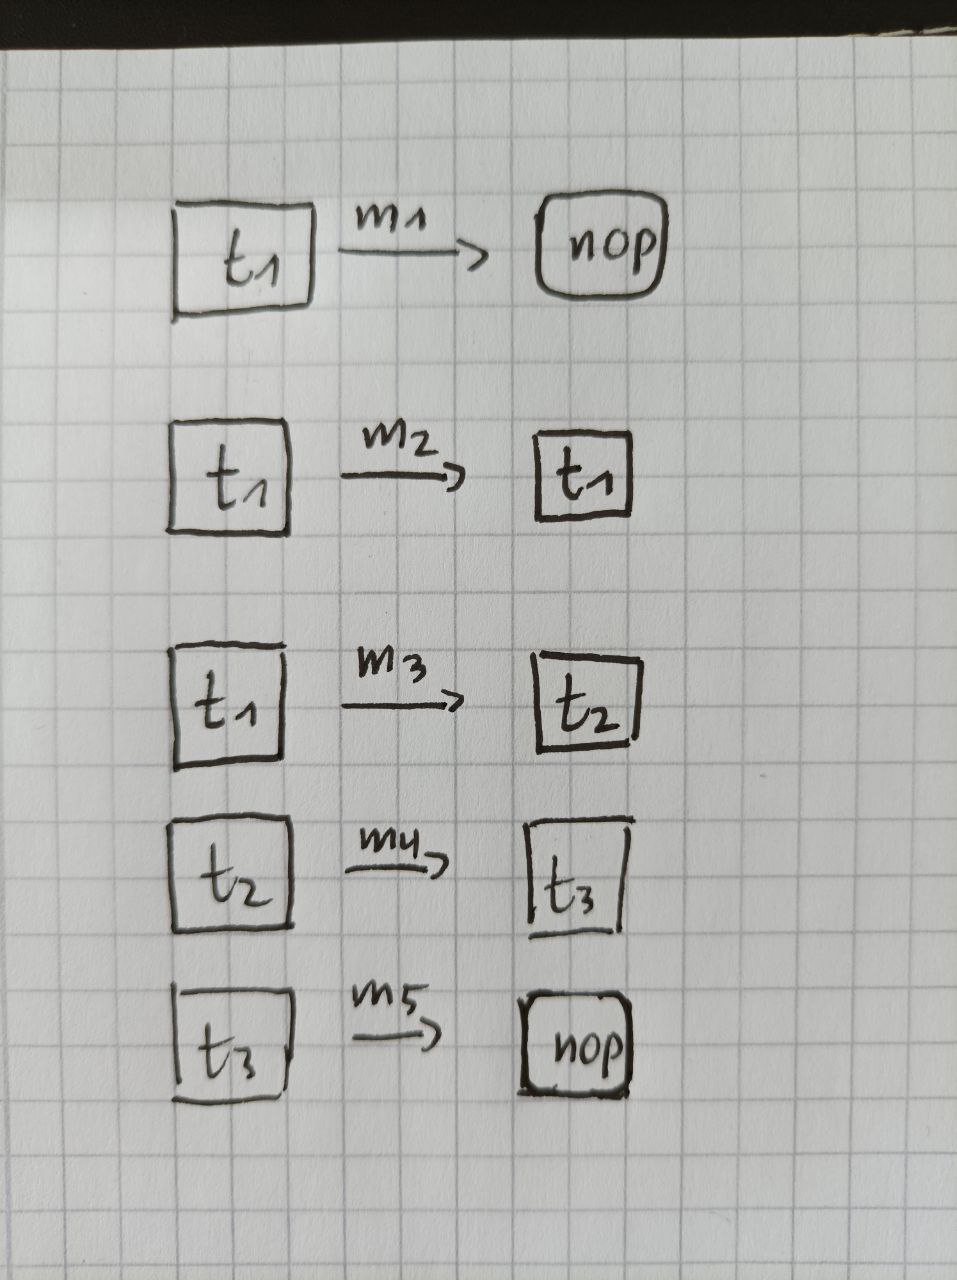 t1 m1 nop
t1 m2 t1
t1 m3 t2
t2 m4 t3
t3 m5 nop